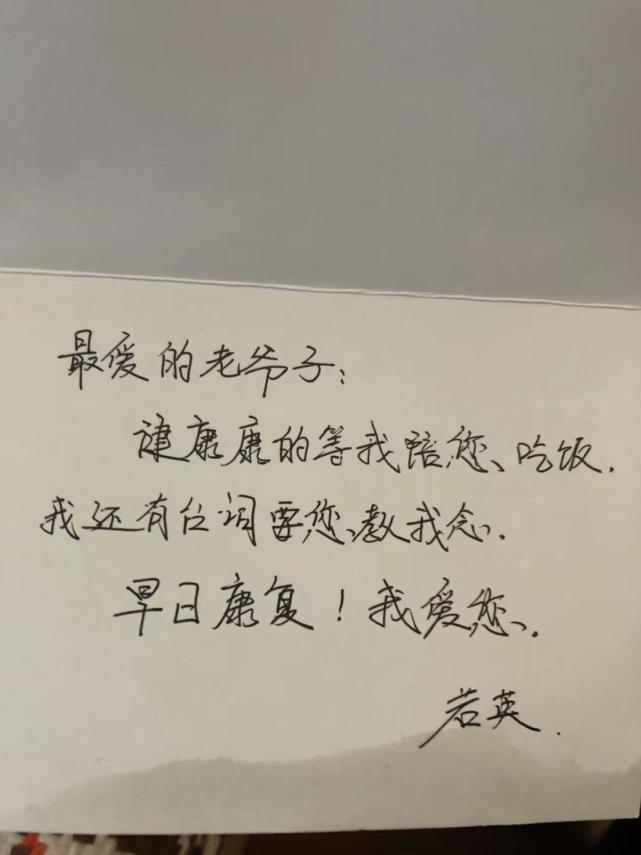 最爱的老爷子：
健康康的等我陪您吃饭.
我还有台词要您教我念.
早日康复！我爱您.
若英.